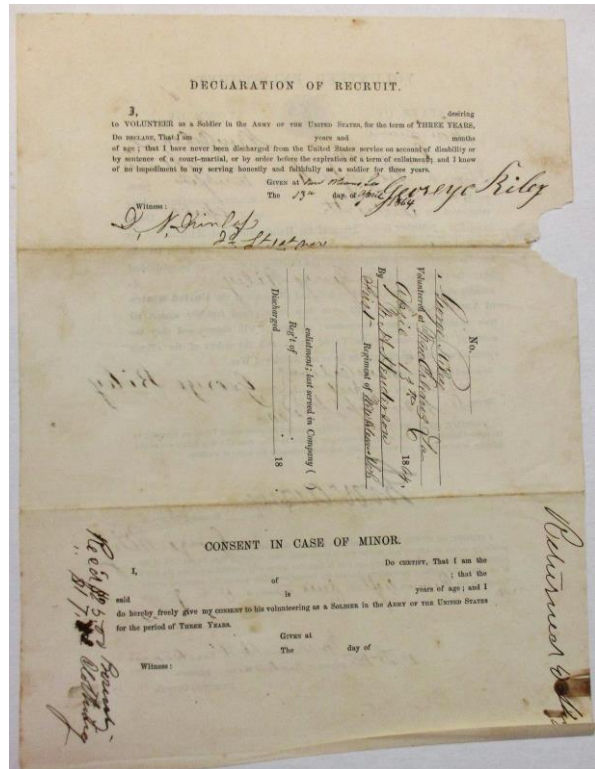 DECLARATION OF RECRUIT.
I, desiring
to VOLUNTEER as a Soldier in the ARMY OF THE UNITED STATES, for the term of THREE YEARS,
Do DECLARE, That I am years and months
of age; that I have never been discharged from the United States service on account of disability or
by sentence of a court-martial, or by order before the expiration of a term of enlistment; and I know
of no impediment to my serving honestly and faithfully as a soldier for three years.
GIVEN at New Orleans La
The 13th day of April 1864
George Riley
Witness:
No.
George Riley
Volunteered at New Orleans La
April 13th 1864,
By Henderson
First Regiment of New Orleans
enlistment; last served in Company ( )
Reg't of
Discharged 18
George Riley
CONSENT IN CASE OF MINOR.
I, Do CERTIFY, That I am the
of ; that the
said is years of age; and I
do hereby freely give my CONSENT to his volunteering as a SOLDIER in the ARMY OF THE UNITED STATES
for the period of THREE YEARS.
GIVEN at
The day of
Witness:
Returned
Clothing